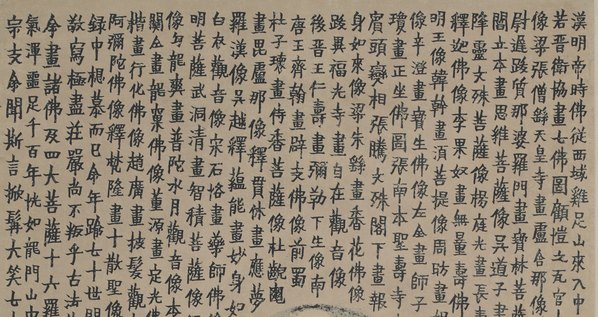 漢明帝時佛從西域雞足山來入中
若晉衛協畫七佛圖顧愷之瓦官
像梁張僧繇天皇寺畫盧舍那像
尉遲跋質那婆羅門畫寶林菩薩
閻立本畫思維菩薩像吳道子畫
降靈文殊菩薩像楊庭光畫長壽
釋迦佛像李果奴畫無量壽佛
明王像韓幹畫須菩提像周昉畫
像辛澄畫寶生佛像左全畫師子
瓊畫正坐佛圖張南本聖壽寺
賓頭變相張騰文殊閣下畫報
身如來像梁朱繇畫香花佛像
跋異福光寺畫自在觀音像
後晉王仁壽畫彌勒下生像南
唐王齊翰畫辟支佛像前蜀
杜子瓌畫侍香菩薩像杜齯龜
畫毘盧那像釋貫休畫應夢
羅漢像吳越釋蘊能畫妙身如
白衣觀音像宋石恪畫藥師佛
明菩薩武洞清畫智積菩薩像
像勾龍爽畫普陀水月觀音像
關仝畫龍窠佛像董源畫定光佛
楷畫行化佛像趙廣畫披髮觀
阿彌陀佛像釋梵隆畫十散聖像
錄中想慕而已余年踰七十世間
敬寫極畫莊嚴尚不叛乎古法
余畫諸佛及四大菩薩十六羅
氣渾靈足千百年恍如龍門山中
宗支余聞斯言掀髯大笑七十